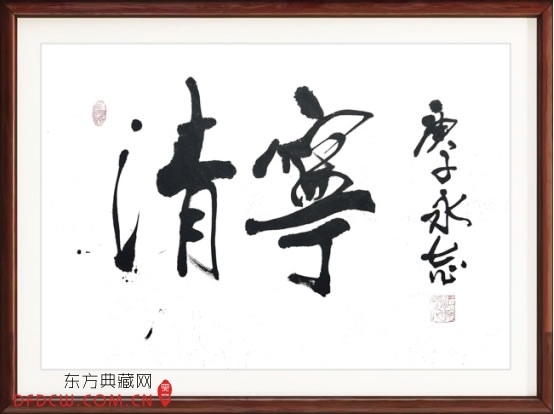 清寧
庚子永志
东方典藏网
DFDCW.COM.CN